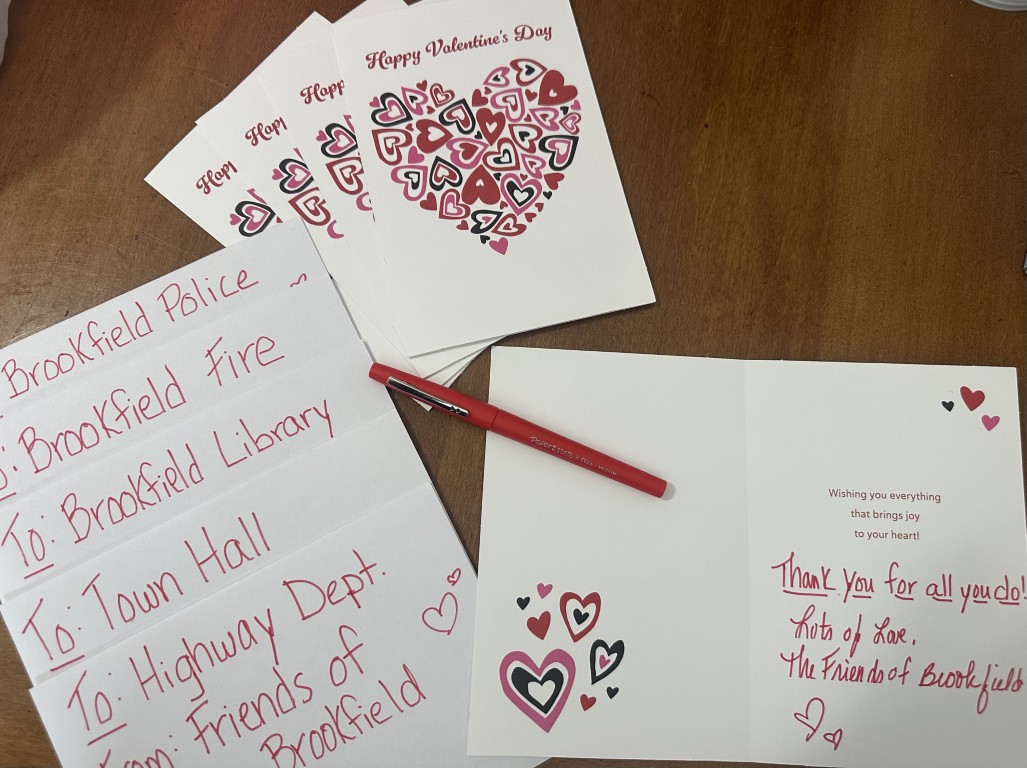 Happy Valentine's Day
Happ
Hap
Hap
Brookfield Police
o: Brookfield Fire
To: Brookfield Library
To: Town Hall
To: Highway Dept.
From: Friends of
Brookfield
Wishing you everything
that brings joy
to your heart!
Thank you for all you do!
Lots of Love,
The Friends of Brookfield